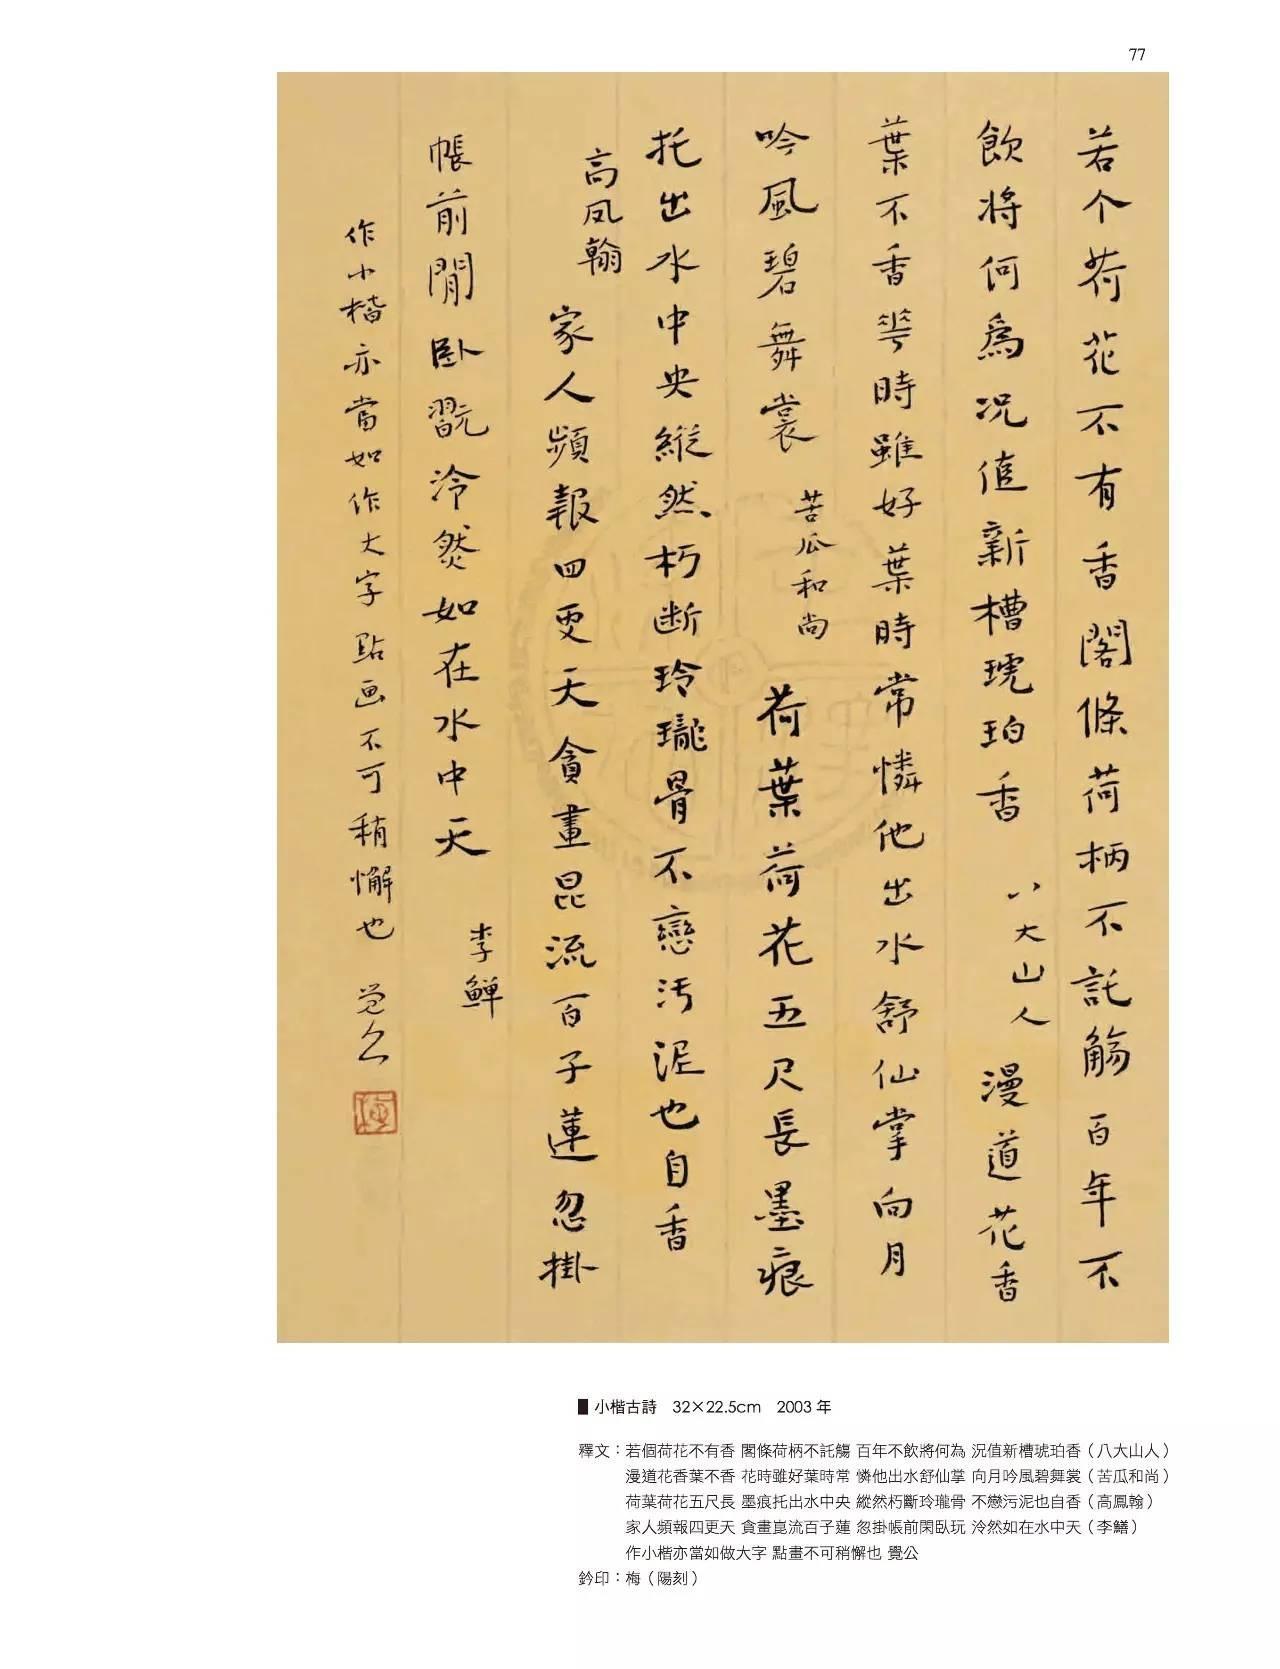 77
若个荷花不有香閣條荷柄不託觴百年不
飲將何為况值新槽琥珀香
八大山人
漫道花香
葉不香花時雖好葉時常憐他出水舒仙掌向月
吟風碧舞裳
苦瓜和尚
荷葉荷花五尺長墨痕
托出水中央縱然朽斷玲瓏骨不戀污泥也自香
高凤翰
家人頻報四更天貪畫昆流百子蓮忽掛
帳前閒卧翫泠然如在水中天
李鱓
作小楷亦當如作大字點画不可稍懈也 觉公
梅
小楷古詩 32×22.5cm 2003 年
釋文：若個荷花不有香 閣條荷柄不託觴 百年不飲將何為 況值新槽琥珀香（八大山人）
漫道花香葉不香 花時雖好葉時常 憐他出水舒仙掌 向月吟風碧舞裳（苦瓜和尚）
荷葉荷花五尺長 墨痕托出水中央 縱然朽斷玲瓏骨 不戀污泥也自香（高鳳翰）
家人頻報四更天 貪畫崑流百子蓮 忽掛帳前閑臥玩 泠然如在水中天（李鱔）
作小楷亦當如做大字 點畫不可稍懈也 覺公
鈐印：梅（陽刻）